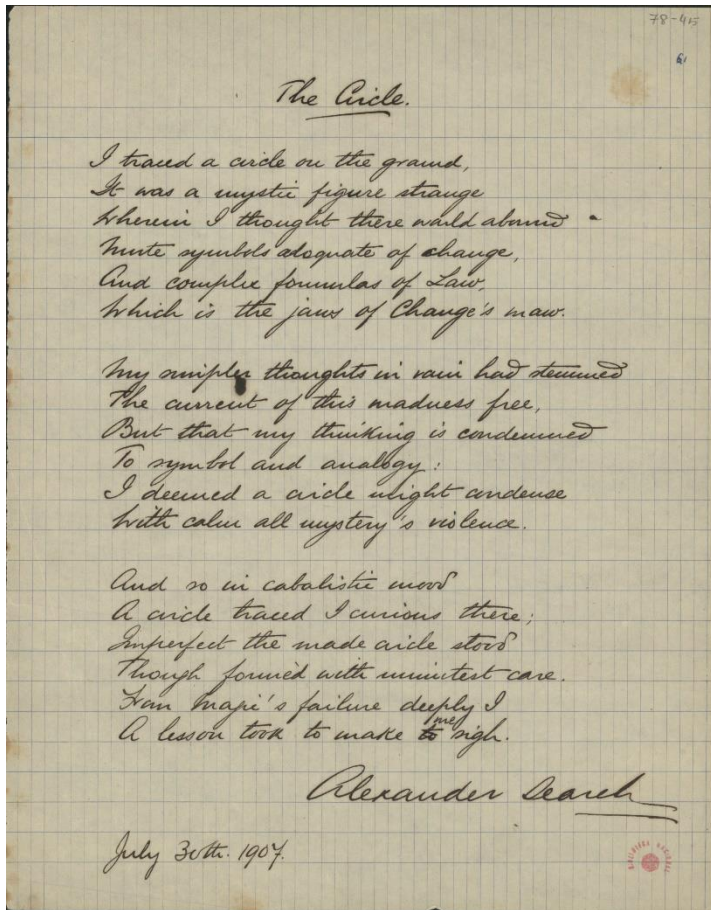 78-45
61
The Circle.
I traced a circle on the ground,
It was a mystic figure strange
Wherein I thought there would abound
Mute symbols adequate of change,
And complex formulas of Law,
Which is the jaws of Change's maw.
My simpler thoughts in vain had stemmed
The current of this madness free,
But that my thinking is condemned
To symbol and analogy:
I deemed a circle might condense
With calm all mystery's violence.
And so in cabalistic mood
A circle traced I curious there;
Imperfect the made circle stood
Though formed with minutest care.
From Magic's failure deeply I
A lesson took to make me sigh.
Alexander Search
July 30th. 1907.
BIBLIOTECA NACIONAL